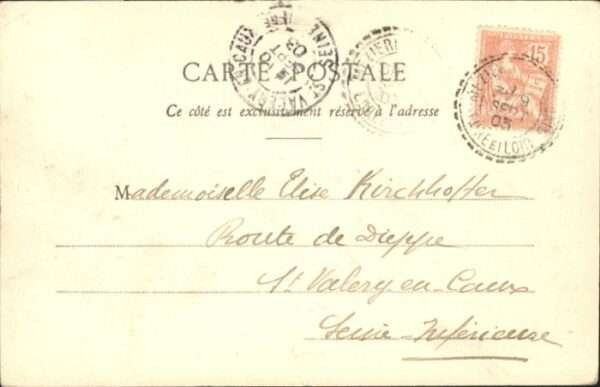 CARTE POSTALE
Ce côté est exclusivement réservé à l'adresse
Mademoiselle Elise Kirchhoffer
Route de Dieppe
St Valery en Caux
Seine Inférieure
15
ST VALERY EN CAUX
SEINE
SEPT
03
EURE ET LOIR
03